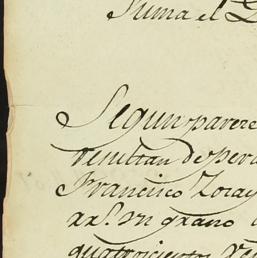 Suma el D
Segun parere
resultan de per
Francisco Loray
rr.s vn grano
quatrocientos Re